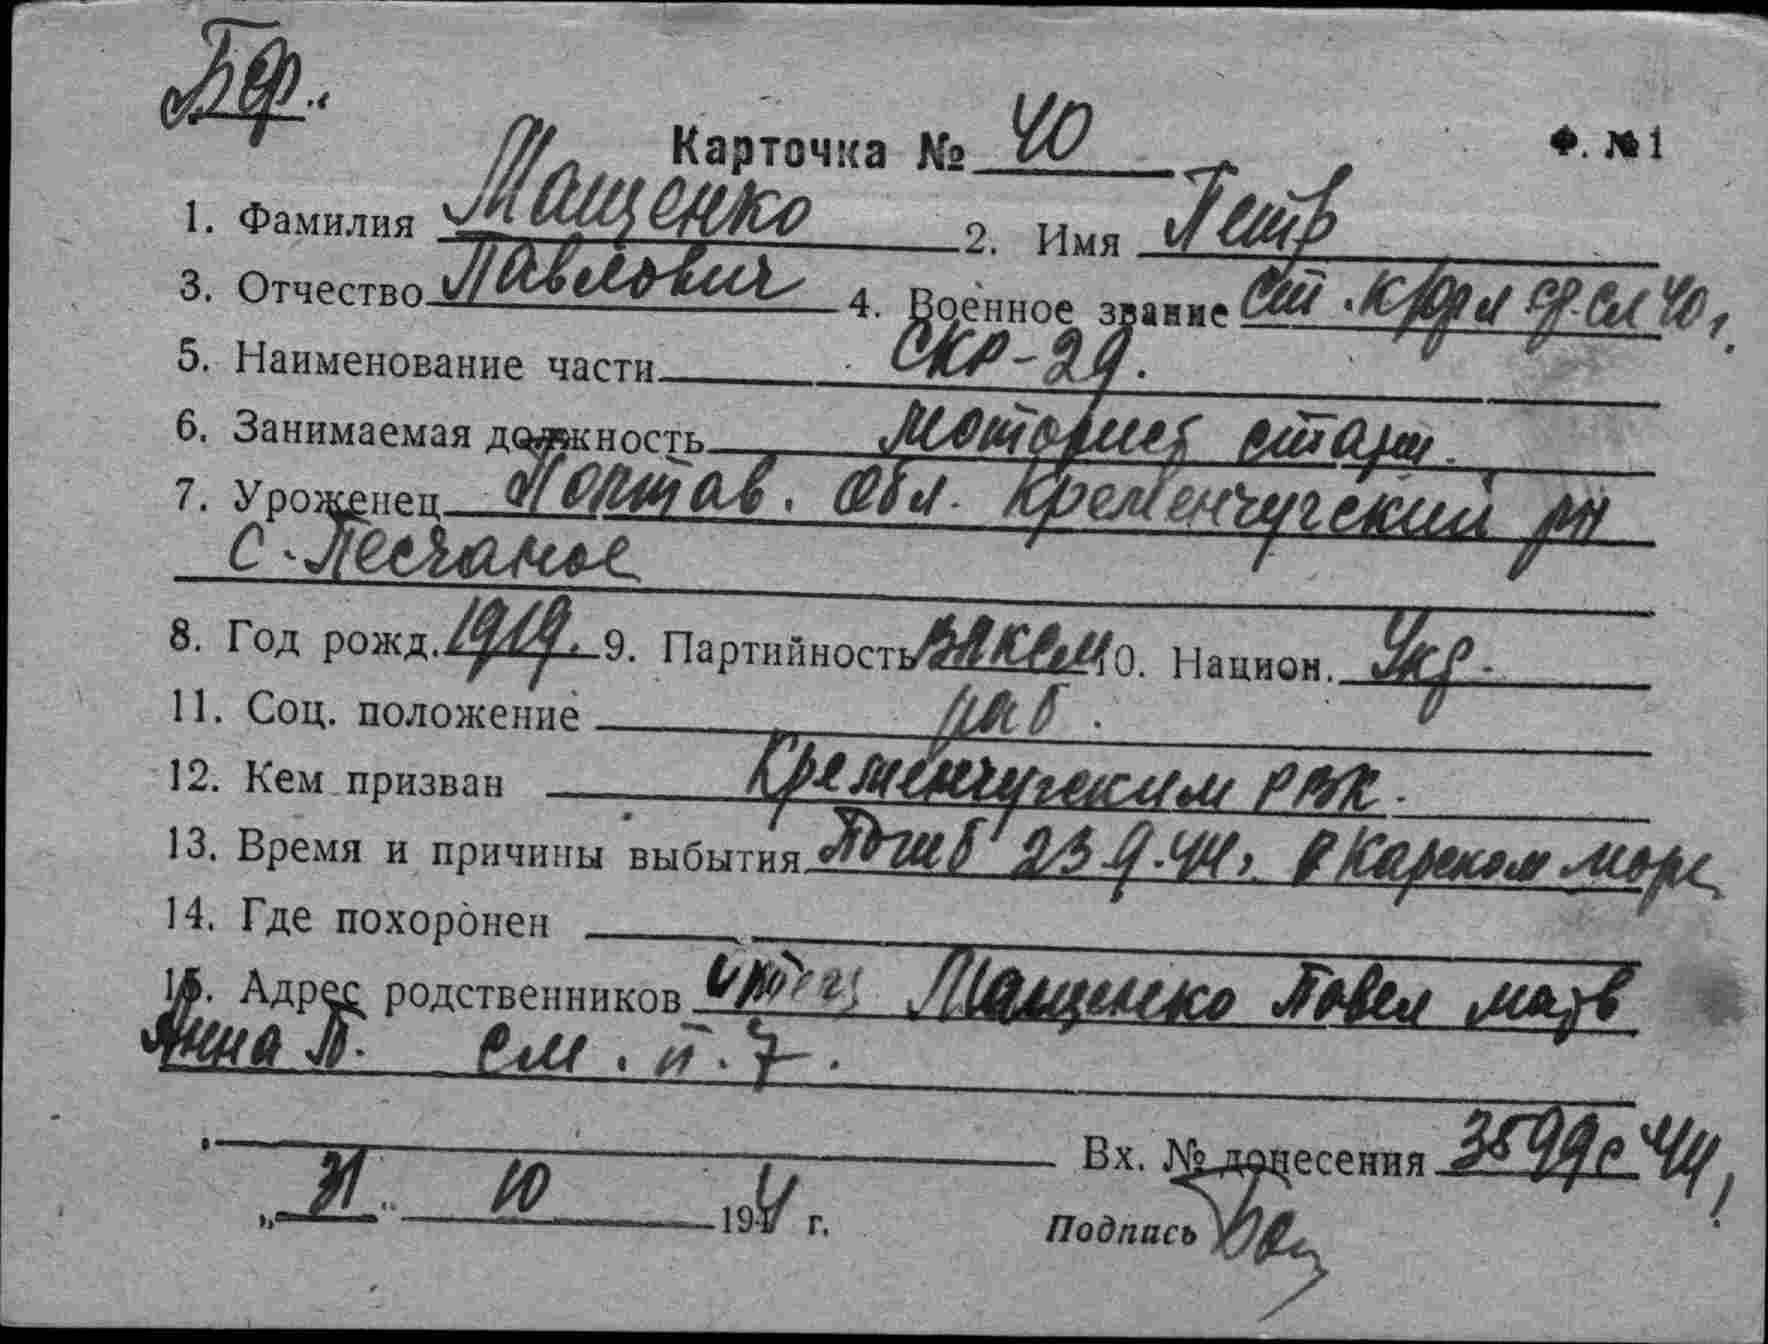 Карточка № 40 Ф. №1
1. Фамилия Мащенко 2. Имя Петр
3. Отчество Павлович 4. Военное звание Ст. кр-фл ср.сл 40 г.
5. Наименование части СКР-29.
6. Занимаемая должность моторист старш.
7. Уроженец Полтав. обл. Кременчугский рн
с. Песчаное
8. Год рожд. 1919. 9. Партийность ВЛКСМ 10. Национ. Укр.
11. Соц. положение раб.
12. Кем призван Кременчугским РВК.
13. Время и причины выбытия Погиб 23.9.44г. в Карском море
14. Где похоронен
15. Адрес родственников отец Мащенко Павел
Анна П. см. п. 7.
Вх. № донесения 3599с 44г.
„31“ 10 1944 г. Подпись